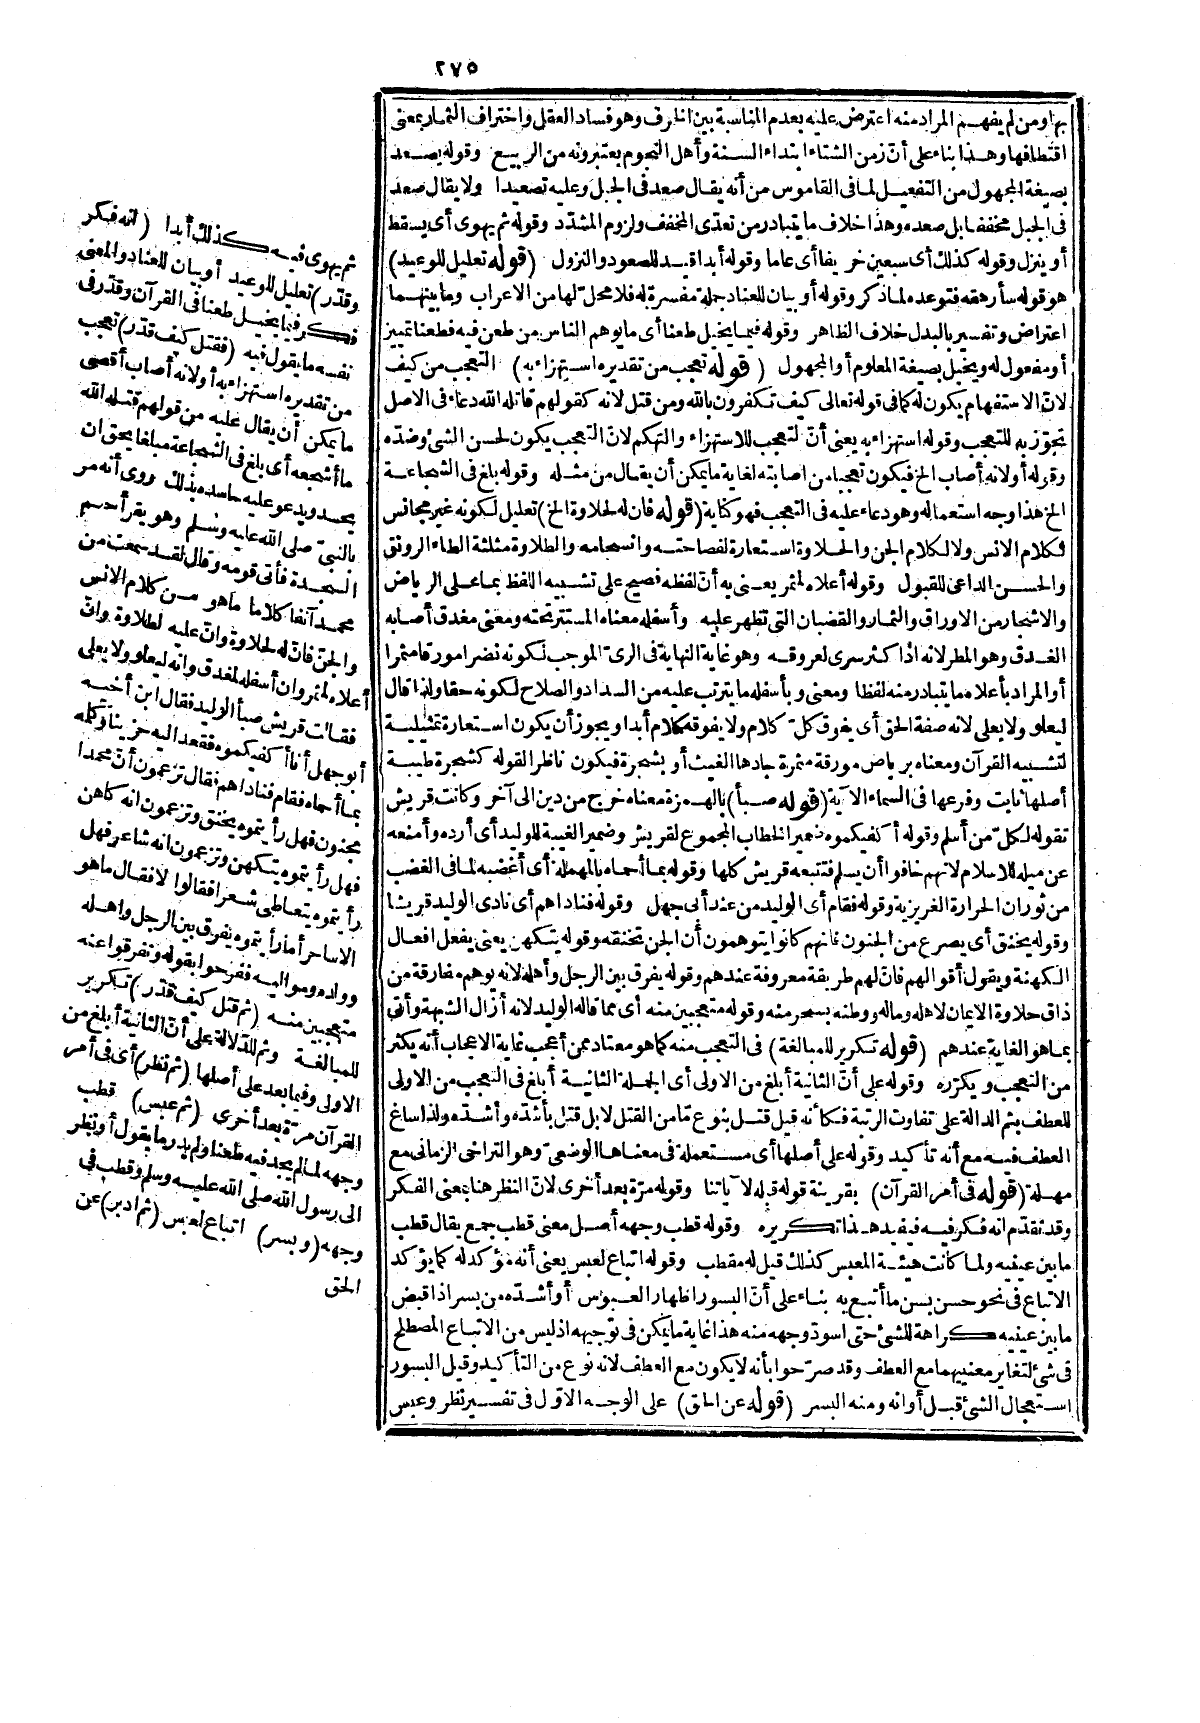 ٢٧٥
بها ومن لم يفهم المراد منه اعترض عليه بعدم المناسبة بين الخرف وهو فساد العقل واختراف الثمار بمعنى
اقتطافها وهذا بناء على أنّ زمن الشتاء ابتداء السنة وأهل النجوم يعتبرونه من الربيع وقوله يصعد
بصيغة المجهول من التفعيل لما فى القاموس من أنه يقال صعد فى الجبل وعليه تصعيدا ولا يقال صعد
فى الجبل مخففا بل صعده وهذا خلاف ما يتبادر من تعدّى المخفف ولزوم المشدّد وقوله ثم يهوى أى يسقط
أو ينزل وقوله كذلك أى سبعين خريفا أى عاما وقوله أبدا قيد للصعود والنزول (قوله تعليل للوعيد)
هو قوله سأرهقه فتوعده لما ذكر وقوله أو بيان للعناد جملة مفسرة له فلا محل لها من الاعراب وما بينهما
اعتراض وتفسير بالبدل خلاف الظاهر وقوله فيما يخيل طعنا أى ما يوهم الناس من طعن فيه فطعنا تمييز
أو مفعول له ويخيل بصيغة المعلوم أو المجهول (قوله تعجب من تقديره استهزاء به) التعجب من كيف
لانّ الاستفهام يكون له كما فى قوله تعالى كيف تكفرون بالله ومن قتل لانه كقولهم قاتله الله دعاء فى الاصل
تجوّز به للتعجب وقوله استهزاء به يعنى أنّ التعجب للاستهزاء والتهكم لانّ التعجب يكون لحسن الشئ وضدّه
وقوله أو لانه أصاب الخ فيكون تعجبا من اصابته لغاية ما يمكن أن يقال من مثله وقوله بلغ فى الشجاعة
الخ هذا وجه استعماله وهو دعاء عليه فى التعجب فهو كناية (قوله فان له لحلاوة الخ) تعليل لكونه غير مجانس
لكلام الانس ولا لكلام الجن والحلاوة استعارة لفصاحته وانسجامه والطلاوة مثلثة الطاء الرونق
والحسن الداعى للقبول وقوله أعلاه لمثمر يعنى به أنّ لفظه فصيح على تشبيه اللفظ بما على الرياض
والاشجار من الاوراق والثمار والقضبان التى تظهر عليه وأسفله معناه المستتر تحته ومعنى مغدق أصابه
الغدق وهو المطر لانه اذا كثر سرى لعروقه وهو غاية النهاية فى الرىّ الموجب لكونه نضرا مورقا مثمرا
أو المراد بأعلاه ما يتبادر منه لفظا ومعنى وبأسفله ما يترتب عليه من السداد والصلاح لكونه حقا ولذا قال
ليعلو ولا يعلى لانه صفة الحق أى يفوق كلّ كلام ولا يفوقه كلام أبدا ويجوز أن يكون استعارة تمثيلية
لتشبيه القرآن ومعناه برياض مورقة مثمرة جادها الغيث أو بشجرة فيكون ناظرا لقوله كشجرة طيبة
أصلها ثابت وفرعها فى السماء الآية (قوله صبأ) بالهمزة معناه خرج من دين الى آخر وكانت قريش
تقوله لكلّ من أسلم وقوله أكفيكموه ضمير الخطاب المجموع لقريش وضمير الغيبة للوليد أى أرده وأمنعه
عن ميله للاسلام لانهم خافوا أن يسلم فتتبعه قريش كلها وقوله بما أحماه بالمهملة أى أغضبه لما فى الغضب
من ثوران الحرارة الغريزية وقوله فقام أى الوليد من عند أبى جهل وقوله فناداهم أى نادى الوليد قريشا
وقوله يخنق أى يصرع من الجنون فانهم كانوا يتوهمون أن الجن تخنقه وقوله يتكهن يعنى يفعل افعال
الكهنة ويقول أقوالهم فانّ لهم طريقة معروفة عندهم وقوله يفرق بين الرجل وأهله لانه يوهم مفارقة من
ذاق حلاوة الايمان لاهله وماله ووطنه بسحر منه وقوله متعجبين منه أى مما قاله الوليد لانه أزال الشبهة وأتى
بما هو الغاية عندهم (قوله تكرير للمبالغة) فى التعجب منه كما هو معتاد ممن أعجب غاية الاعجاب أنه يكثر
من التعجب ويكرّره وقوله على أنّ الثانية أبلغ من الاولى أى الجملة الثانية أبلغ فى التعجب من الاولى
للعطف بثم الدالة على تفاوت الرتبة فكأنه قيل قتل بنوع مّا من القتل لا بل قتل بأشدّه وأشدّه ولذا ساغ
العطف فيه مع أنه تأكيد وقوله على أصلها أى مستعملة فى معناها الوضعىّ وهو التراخى الزمانى مع
مهلة (قوله فى أمر القرآن) بقرينة قوله قبله لآياتنا وقوله مرّة بعد أخرى لانّ النظر هنا بمعنى الفكر
وقد تقدّم انه فكر فيه فيفيد هذا تكريره وقوله قطب وجهه أصل معنى قطب جمع يقال قطب
ما بين عينيه ولما كانت هيئة المعبس كذلك قيل له مقطب وقوله اتباع لعبس يعنى أنه مؤكد له كما يؤكد
الاتباع فى نحو حسن بسن ما أتبع به بناء على أنّ البسور اظهار العبوس أو أشدّه من بسر اذا قبض
ما بين عينيه كراهة للشئ حتى اسودّ وجهه منه هذا غاية ما يمكن فى توجيهه اذ ليس من الاتباع المصطلح
فى شئ لتغاير معنييهما مع العطف وقد صرّحوا بأنه لا يكون مع العطف لانه نوع من التأكيد وقيل البسور
استعجال الشئ قبل أوانه ومنه البسر (قوله عن الحق) على الوجه الاوّل فى تفسير نظر وعبس
ثم يهوى فيه كذلك أبدا (انه فكر
وقدّر) تعليل للوعيد أو بيان للعناد والمعنى
فكر فيما يخيل طعنا فى القرآن وقدّر فى
نفسه ما يقول فيه (فقتل كيف قدّر) تعجب
من تقديره استهزاء به أو لانه أصاب أقصى
ما يمكن أن يقال عليه من قولهم قتله الله
ما أشجعه أى بلغ فى الشجاعة مبلغا يحق ان
يحسد ويدعو عليه حاسده بذلك روى أنه مر
بالنبىّ صلى الله عليه وسلم وهو يقرأ حم
السجدة فأتى قومه وقال لقد سمعت من
محمد آنفا كلاما ما هو من كلام الانس
والجنّ فانّ له لحلاوة وانّ عليه لطلاوة وانّ
أعلاه لمثمر وان أسفله لمغدق وانه ليعلو ولا يعلى
فقالت قريش صبأ الوليد فقال ابن أخيه
أبو جهل أنا أكفيكموه فقعد اليه حزينا وكلمه
بما أحماه فقام فناداهم فقال تزعمون أنّ محمدا
مجنون فهل رأيتموه يخنق وتزعمون انه كاهن
فهل رأيتموه يتكهن وتزعمون انه شاعر فهل
رأيتموه يتعاطى شعرا فقالوا لا فقال ما هو
الا ساحر أما رأيتموه يفرق بين الرجل واهله
وولده ومواليه ففرحوا بقوله وتفرقوا عنه
متعجبين منه (ثم قتل كيف قدّر) تكرير
للمبالغة وثم للدلالة على أنّ الثانية أبلغ من
الاولى وفيما بعد على أصلها (ثم نظر) أى فى أمر
القرآن مرّة بعد أخرى (ثم عبس) قطب
وجهه لما لم يجد فيه طعنا ولم يدر ما يقول أو نظر
الى رسول الله صلى الله عليه وسلم وقطب فى
وجهه (وبسر) اتباع لعبس (ثم ادبر) عن
الحق